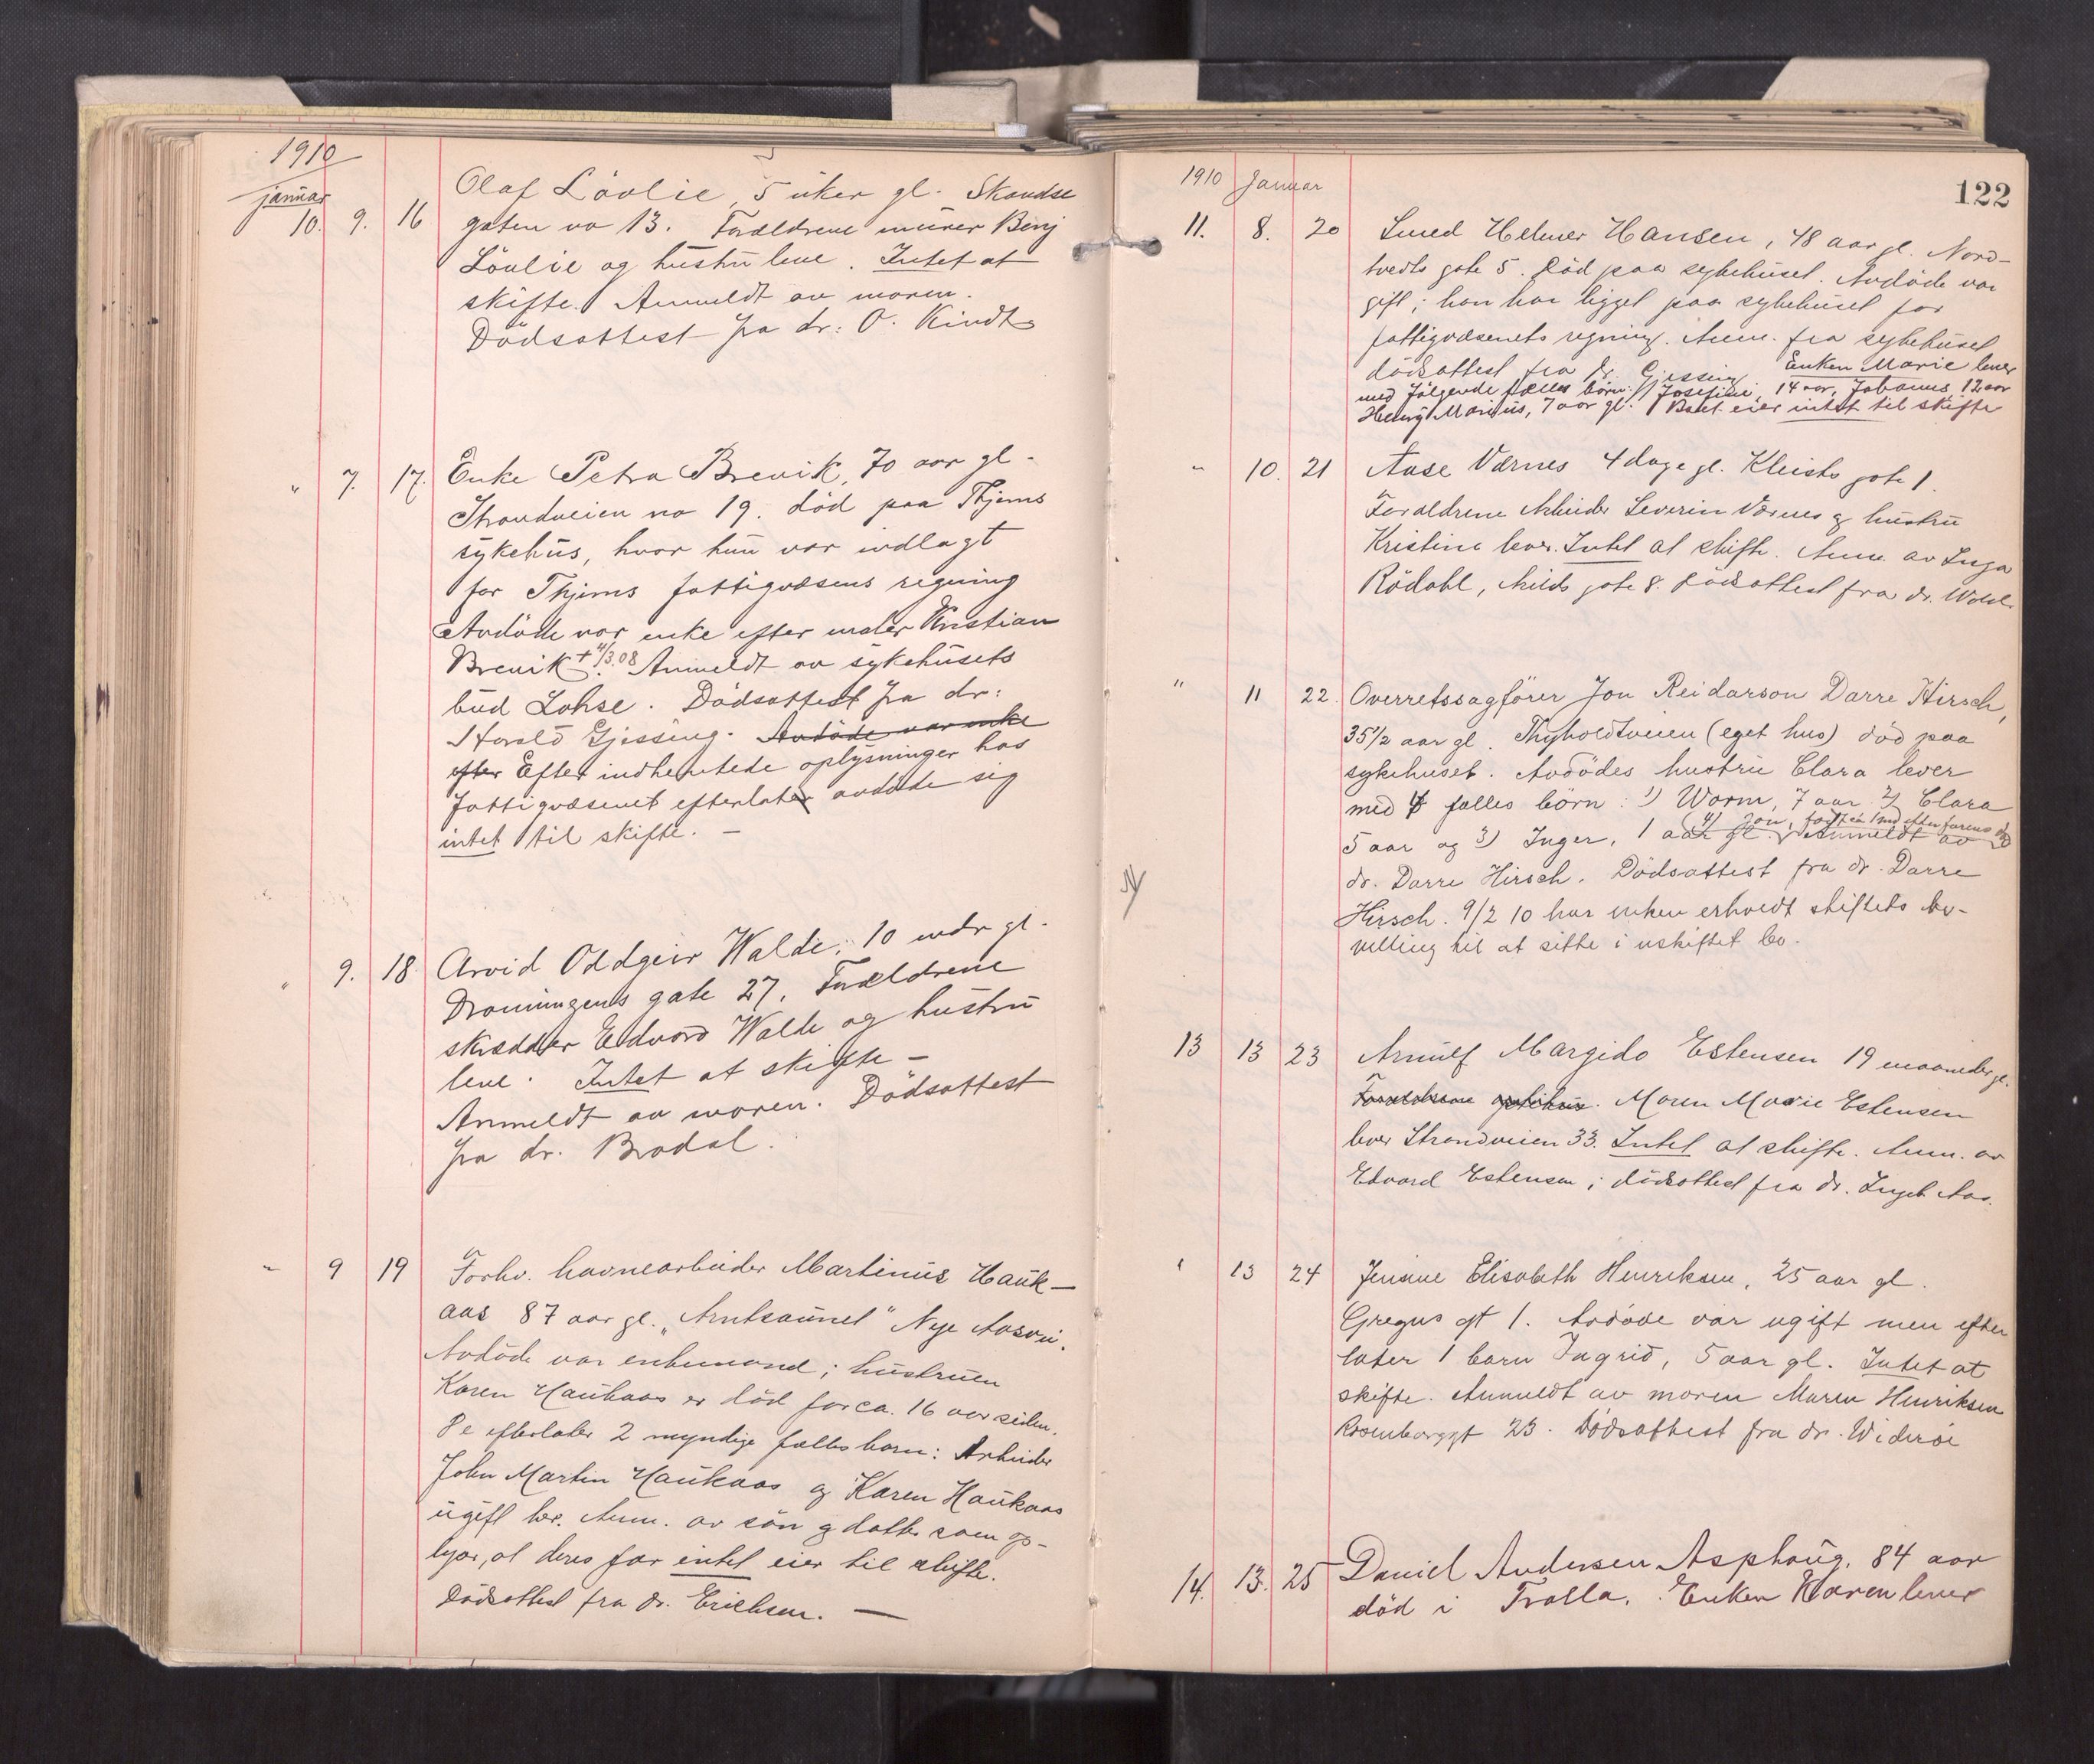 1910
januar
10. 9. 16 Olaf Lövlie, 5 uker gl. Skandse
gaten no 13. Forældrene murer Benj
Lövlie og hustru leve. Intet at
skifte. Anmeldt av moren.
Dödsattest fra dr: O. Kindt
" 7. 17. Enke Petra Brevik, 70 aar gl.
Strandveien no 19. död paa Thjems
sykehus, hvor hun var indlagt
for Thjems fattigvæsens regning
Avdöde var enke efter maler Kristian
Brevik + 4/3.08. Anmeldt av sykehusets
bud Lohse. Dödsattest fra dr:
Harald Gjessing. Avdöde var enke
efter Efter indhentede oplysninger hos
fattigvæsenet efterlater avdöde sig
intet til skifte. —
" 9. 18 Arvid Oddgeir Walde, 10 mdr gl.
Dronningens gate 27. Forældrene
skrædder Edvard Walde og hustru
leve. Intet at skifte —
Anmeldt av moren. Dödsattest
fra dr. Brodal.
" 9 19 Forhv. havnearbeider Martinus Hauk-
aas 87 aar gl. "Arntsaunet" Nye Aasvei.
Avdöde var enkemand; hustruen
Karen Haukaas er död for ca. 16 aar siden.
De efterlater 2 myndige fælles barn: Arbeider
John Martin Haukaas og Karen Haukaas
ugift her. Anm. av sön og datter som op-
lyser, at deres far intet eier til skifte.
Dödsattest fra dr. Erichsen. —
1910 Januar
122
11. 8. 20 Smed Helmer Hansen, 48 aar gl. Nord-
tvedts gate 5. Död paa sykehuset. Avdöde var
gift; han har ligget paa sykehuset for
fattigvæsenets regning. Anm. fra sykehuset
dödsattest fra dr. Gjessing Enken Marie lever
med fölgende fælles börn: Josefine, 14 aar, Johannes 12 aar
Henry Marius, 7 aar gl. Boet eier intet til skifte
" 10. 21 Aase Værnes 4 dage gl. Kleists gate 1.
Forældrene Arbeider Severin Værnes og hustru
Kristine lever. Intet at skifte. Anm. av Inga
Rödahl, Milds gate 8. Dödsattest fra dr.
" 11 22. Overretssagförer Jon Reidarson Darre Hirsch,
35 1/2 aar gl. Thyholdtveien (eget hus) död paa
sykehuset. Avdödes hustru Clara lever
med 4 fælles börn: 1) Worm, 7 aar 2) Clara
4) Jon, födt ca 1 md efter farens död
5 aar og 3) Inger, 1 aar gl. Anmeldt av
dr. Darre Hirsch. Dödsattest fra dr. Darre
Hirsch. 9/2 10 har enken erholdt skiftets be-
villing til at sitte i uskiftet bo.
13 13 23 Arnulf Margido Estensen 19 maaneder gl.
Forældrene. Moren Marie Estensen
bor Strandveien 33. Intet at skifte. Anm. av
Edvard Estensen; dödsattest fra dr. Ingeb. Aas.
" 13 24 Jenine Elisabeth Henriksen, 25 aar gl.
Gregus gt 1. Avdöde var ugift men efter
later 1 barn Ingrid, 5 aar gl. Intet at
skifte. Anmeldt av moren Maren Henriksen
Rosenborggt 23. Dödsattest fra dr. Wideröe
14. 13. 25 Daniel Andersen Asphaug, 84 aar
död i Trolla. Enken Karen lever